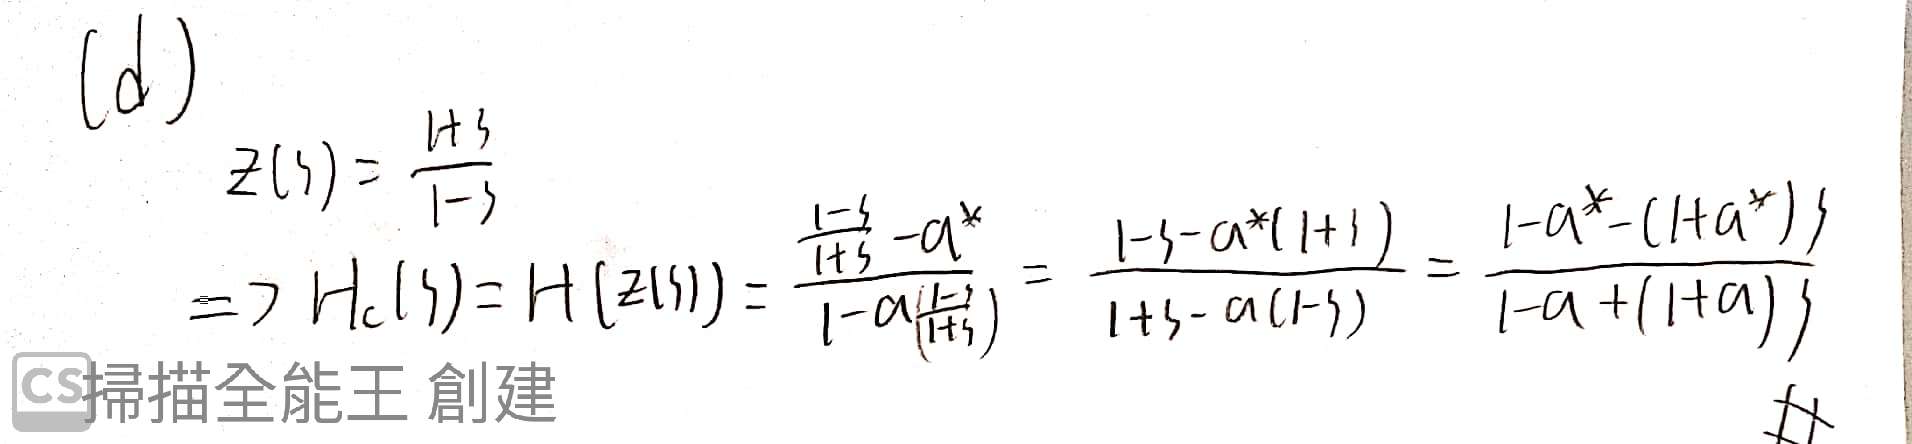 (d)
z(s) = \frac{1+s}{1-s}
=> H_c(s) = H(z(s)) = \frac{\frac{1-s}{1+s} - a^*}{1-a(\frac{1-s}{1+s})} = \frac{1-s-a^*(1+s)}{1+s-a(1-s)} = \frac{1-a^*-(1+a^*)s}{1-a+(1+a)s}
#
CS掃描全能王 創建